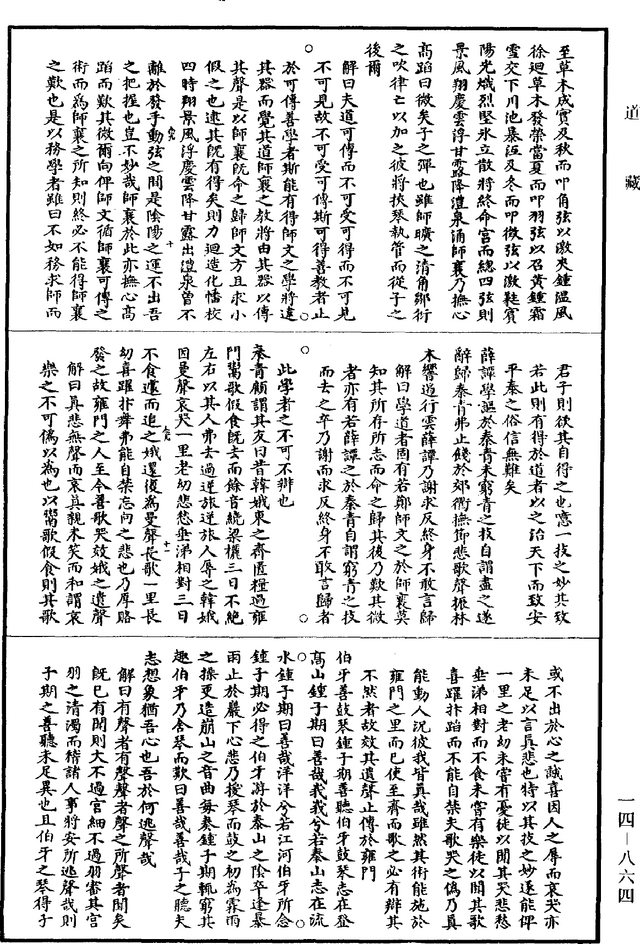 道藏
至草木成實及秋而叩角弦以激夾鍾溫風
徐廻草木發榮當夏而叩羽弦以召黃鍾霜
雪交下川池暴沍及冬而叩徵弦以激蕤賓
陽光熾烈堅氷立散將終命宮而總四弦則
景風翔慶雲浮甘露降澧泉涌師襄乃撫心
高蹈曰微矣子之彈也雖師曠之清角鄒衍
之吹律亡以加之彼將挾琴執管而從子之
後爾
解曰夫道可傳而不可受可得而不可見
不可見故不可受可傳斯可得善教者止
於可傳善學者斯能有得師文之學將遺
其器而覺其道師襄之教將由其器以傳
其聲是以師襄旣命之歸師文方且求小
假之也逮其旣有得矣則力迴造化幡校
四時翔景風浮慶雲降甘露出澧泉曽不
離於發手動弦之間是陰陽之運不出吾
之把握也豈不妙哉師襄於此亦撫心高
蹈而歎其微爾向俾師文循師襄可傳之
術而爲師襄之所知則終必不能得師襄
之歎也是以務學者雖曰不如務求師而
君子則欲其自得之也噫一技之妙其效
若此則有得於道者以之治天下而致安
平泰之俗信無難矣
薛譚學謳於秦青未窮青之技自謂盡之遂
辭歸秦青弗止餞於郊衢撫節悲歌聲振林
木響遏行雲薛譚乃謝求反終身不敢言歸
解曰學道者固有若鄭師文之於師襄莫
知其所存所志而命之歸其後乃歎其微
者亦有若薛譚之於秦青自謂窮青之技
而去之卒乃謝而求反終身不敢言歸者
此學者之不可不辨也
秦青顧謂其友曰昔韓娥東之齊匱糧過雍
門鬻歌假食旣去而餘音繞梁欐三日不絕
左右以其人弗去過逆旅逆旅人辱之韓娥
因曼聲哀哭一里老幼悲愁垂涕相對三日
不食遽而追之娥還復為曼聲長歌一里長
幼喜躍抃舞弗能自禁忘向之悲也乃厚賂
發之故雍門之人至今善歌哭效娥之遺聲
解曰真悲無聲而哀真親未笑而和謂哀
樂之不可偽以為也以鬻歌假食則其歌
或不出於心之誠喜因人之辱而哀哭亦
未足以言真悲也特以其技之妙遂能俾
一里之老幼未嘗有憂徒以聞其哭悲愁
垂涕相對而不食未嘗有樂徒以聞其歌
喜躍抃蹈而不能自禁夫歌哭之偽乃真
能動人況彼我皆真哉雖然其術能施於
雍門之里而已使至齊而歌之必有辨其
不然者故效其遺聲止傳於雍門
伯牙善鼓琴鍾子期善聽伯牙鼓琴志在登
高山鍾子期曰善哉峩峩兮若泰山志在流
水鍾子期曰善哉洋洋兮若江河伯牙所念
鍾子期必得之伯牙游於泰山之陰卒逢暴
雨止於巖下心悲乃援琴而鼓之初為霖雨
之操更造崩山之音曲每奏鍾子期輒窮其
趣伯牙乃舍琴而歎曰善哉善哉子之聽夫
志想象猶吾心也吾於何逃聲哉
解曰有聲者有聲聲者聲之所聲者聞矣
旣已有聞則大不過宮細不過羽審其宮
羽之清濁而稽諸人事將安所逃聲哉則
子期之善聽未足異也且伯牙之琴得于
一四—八六四